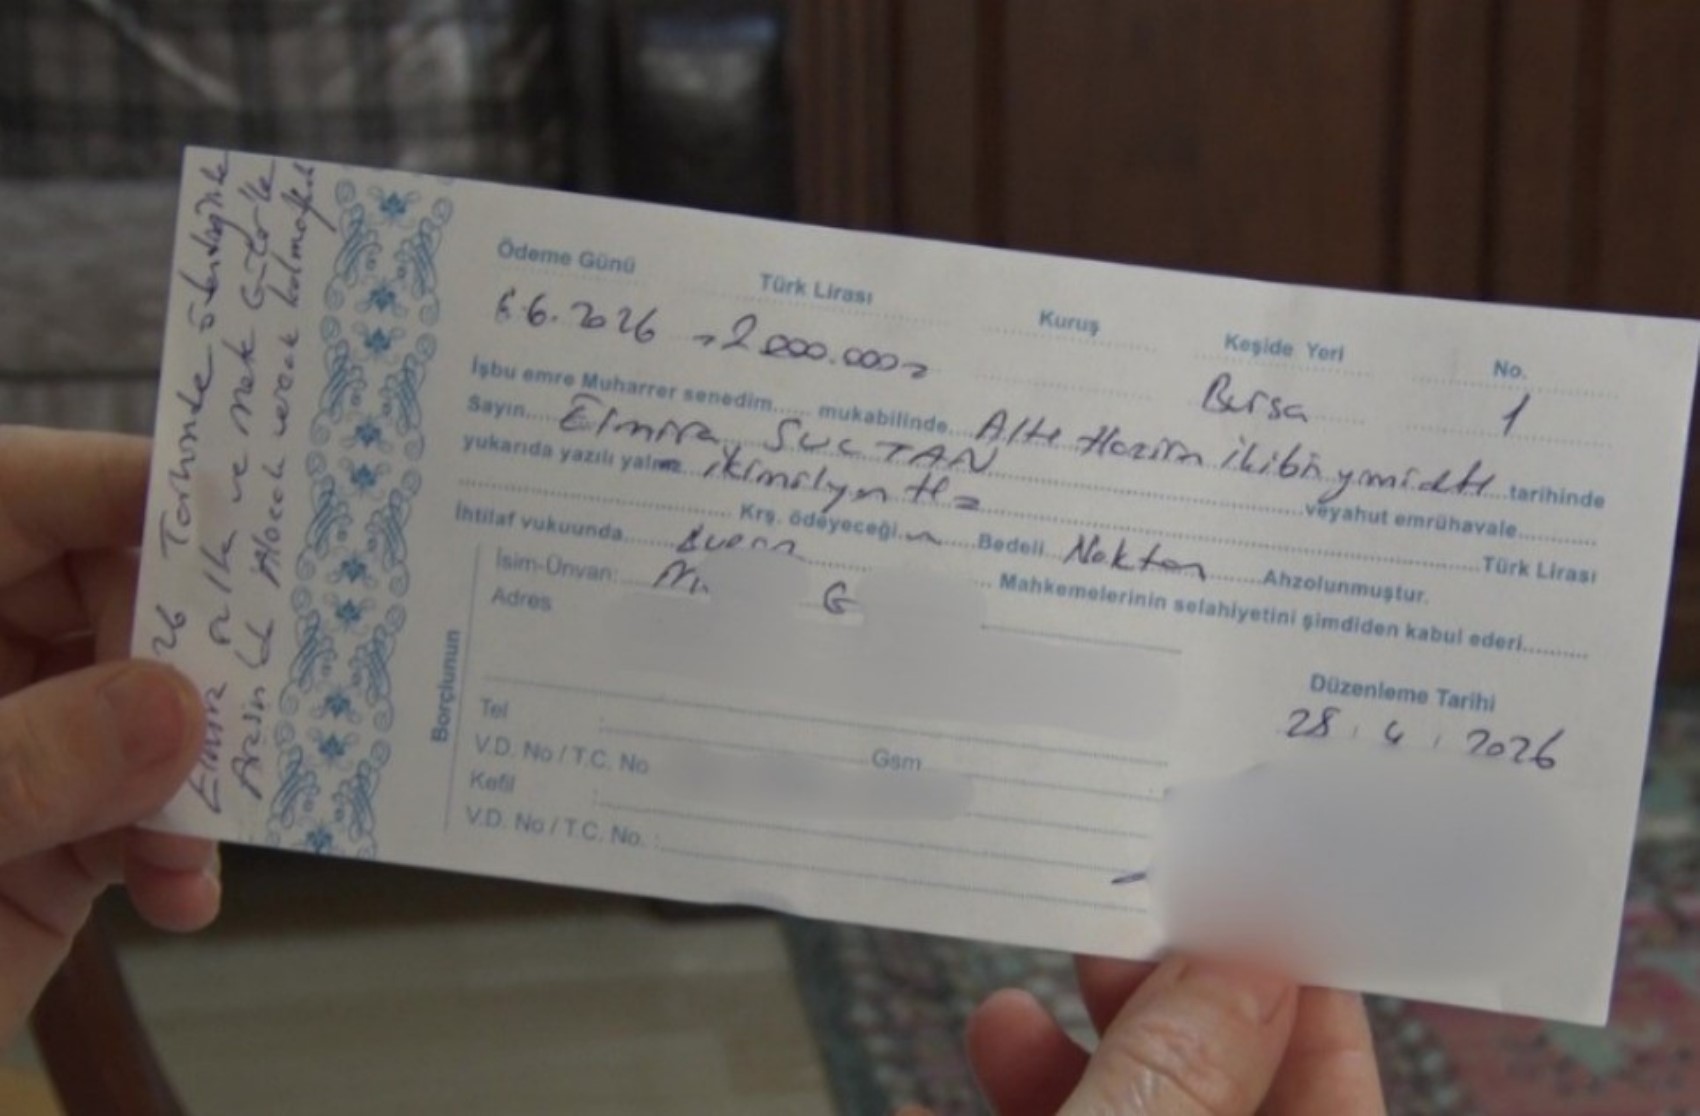 Ödeme Günü Türk Lirası Kuruş Keşide Yeri No.
6.6.2026 =2000.000= Bursa 1
İşbu emre Muharrer senedim...... mukabilinde... Altı Haziran ikibin yirmi altı ...tarihinde
Sayın..... Elmira SULTAN ...veyahut emrühavale.......
yukarıda yazılı yalnız ikimilyon tl= ...Türk Lirası
Krş. ödeyeceği... Bedeli Nakten ...Ahzolunmuştur.
İhtilaf vukuunda...... Bursa ... Mahkemelerinin selahiyetini şimdiden kabul ederi.........
Borçlunun
İsim-Ünvan: M. G
Adres
Tel
Gsm
V.D. No / T.C. No
Kefil
V.D. No / T.C. No. :
Düzenleme Tarihi
28.4.2026
26 Tarihinde ödendiğinde
Elmira ve
Alacak verecek kalmayacak